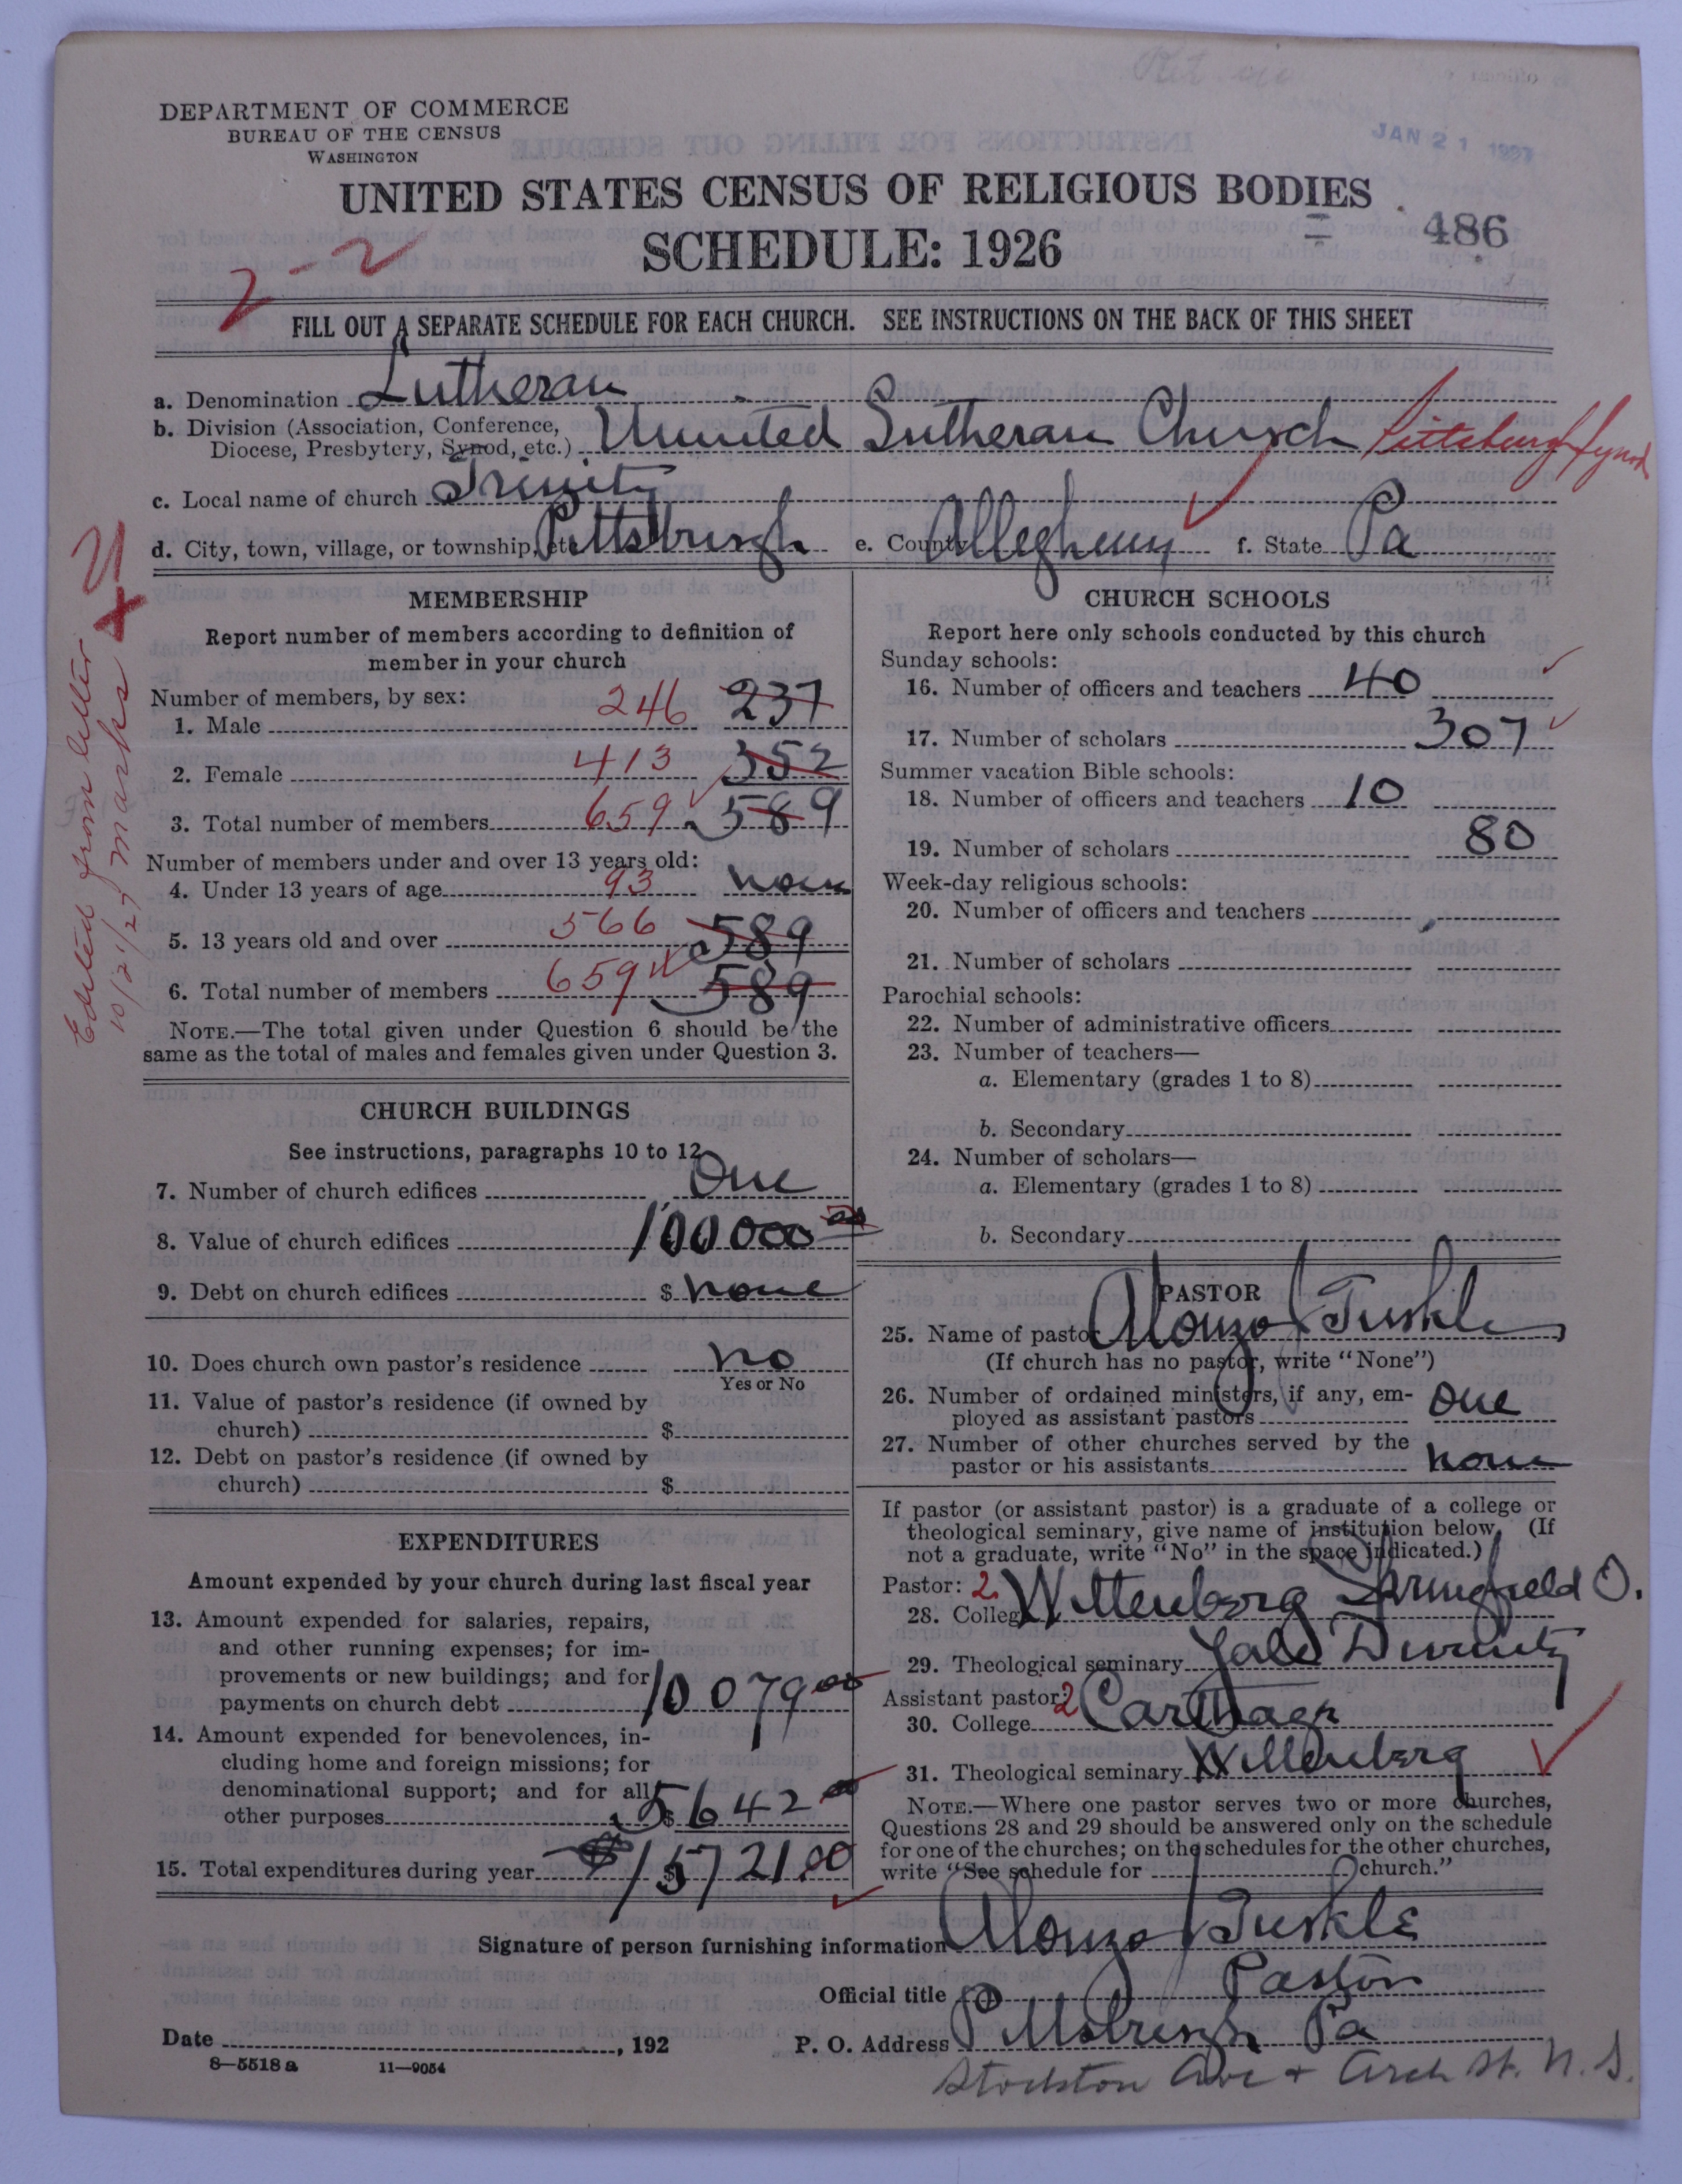 DEPARTMENT OF COMMERCE
BUREAU OF THE CENSUS
WASHINGTON
JAN 21 1927
UNITED STATES CENSUS OF RELIGIOUS BODIES
SCHEDULE: 1926
486
2-2
FILL OUT A SEPARATE SCHEDULE FOR EACH CHURCH. SEE INSTRUCTIONS ON THE BACK OF THIS SHEET
a. Denomination Lutheran
b. Division (Association, Conference, Diocese, Presbytery, Synod, etc.) United Lutheran Church Pittsburgh Synod
c. Local name of church Trinity
d. City, town, village, or township, etc. Pittsburgh e. County Allegheny f. State Pa
Edited from letter
10/21/27 Marks
MEMBERSHIP
Report number of members according to definition of
member in your church
Number of members, by sex:
1. Male 246 237
2. Female 413 352
3. Total number of members 659 589
Number of members under and over 13 years old:
4. Under 13 years of age 93 none
5. 13 years old and over 566 589
6. Total number of members 659 589
NOTE.—The total given under Question 6 should be the
same as the total of males and females given under Question 3.
CHURCH BUILDINGS
See instructions, paragraphs 10 to 12
7. Number of church edifices One
8. Value of church edifices 100000 00
9. Debt on church edifices $ none
10. Does church own pastor's residence no
Yes or No
11. Value of pastor's residence (if owned by
church) $
12. Debt on pastor's residence (if owned by
church) $
EXPENDITURES
Amount expended by your church during last fiscal year
13. Amount expended for salaries, repairs,
and other running expenses; for im-
provements or new buildings; and for
payments on church debt 10079 00
14. Amount expended for benevolences, in-
cluding home and foreign missions; for
denominational support; and for all
other purposes $ 5642 00
15. Total expenditures during year $ 15721.00
CHURCH SCHOOLS
Report here only schools conducted by this church
Sunday schools:
16. Number of officers and teachers 40
17. Number of scholars 307
Summer vacation Bible schools:
18. Number of officers and teachers 10
19. Number of scholars 80
Week-day religious schools:
20. Number of officers and teachers
21. Number of scholars
Parochial schools:
22. Number of administrative officers
23. Number of teachers—
a. Elementary (grades 1 to 8)
b. Secondary
24. Number of scholars—
a. Elementary (grades 1 to 8)
b. Secondary
PASTOR
25. Name of pastor Alonzo J Turkle
(If church has no pastor, write "None")
26. Number of ordained ministers, if any, em-
ployed as assistant pastors one
27. Number of other churches served by the
pastor or his assistants none
If pastor (or assistant pastor) is a graduate of a college or
theological seminary, give name of institution below. (If
not a graduate, write "No" in the space indicated.)
Pastor: 2
28. College Wittenberg Springfield O.
29. Theological seminary Yale Divinity
Assistant pastor: 2
30. College Carthage
31. Theological seminary Wittenberg
NOTE.—Where one pastor serves two or more churches,
Questions 28 and 29 should be answered only on the schedule
for one of the churches; on the schedules for the other churches,
write "See schedule for church."
Signature of person furnishing information Alonzo J Turkle
Official title Pastor
Date , 192 P. O. Address Pittsburgh Pa
8—5518 a 11—9054
Stockton Ave + Arch St. N. S.